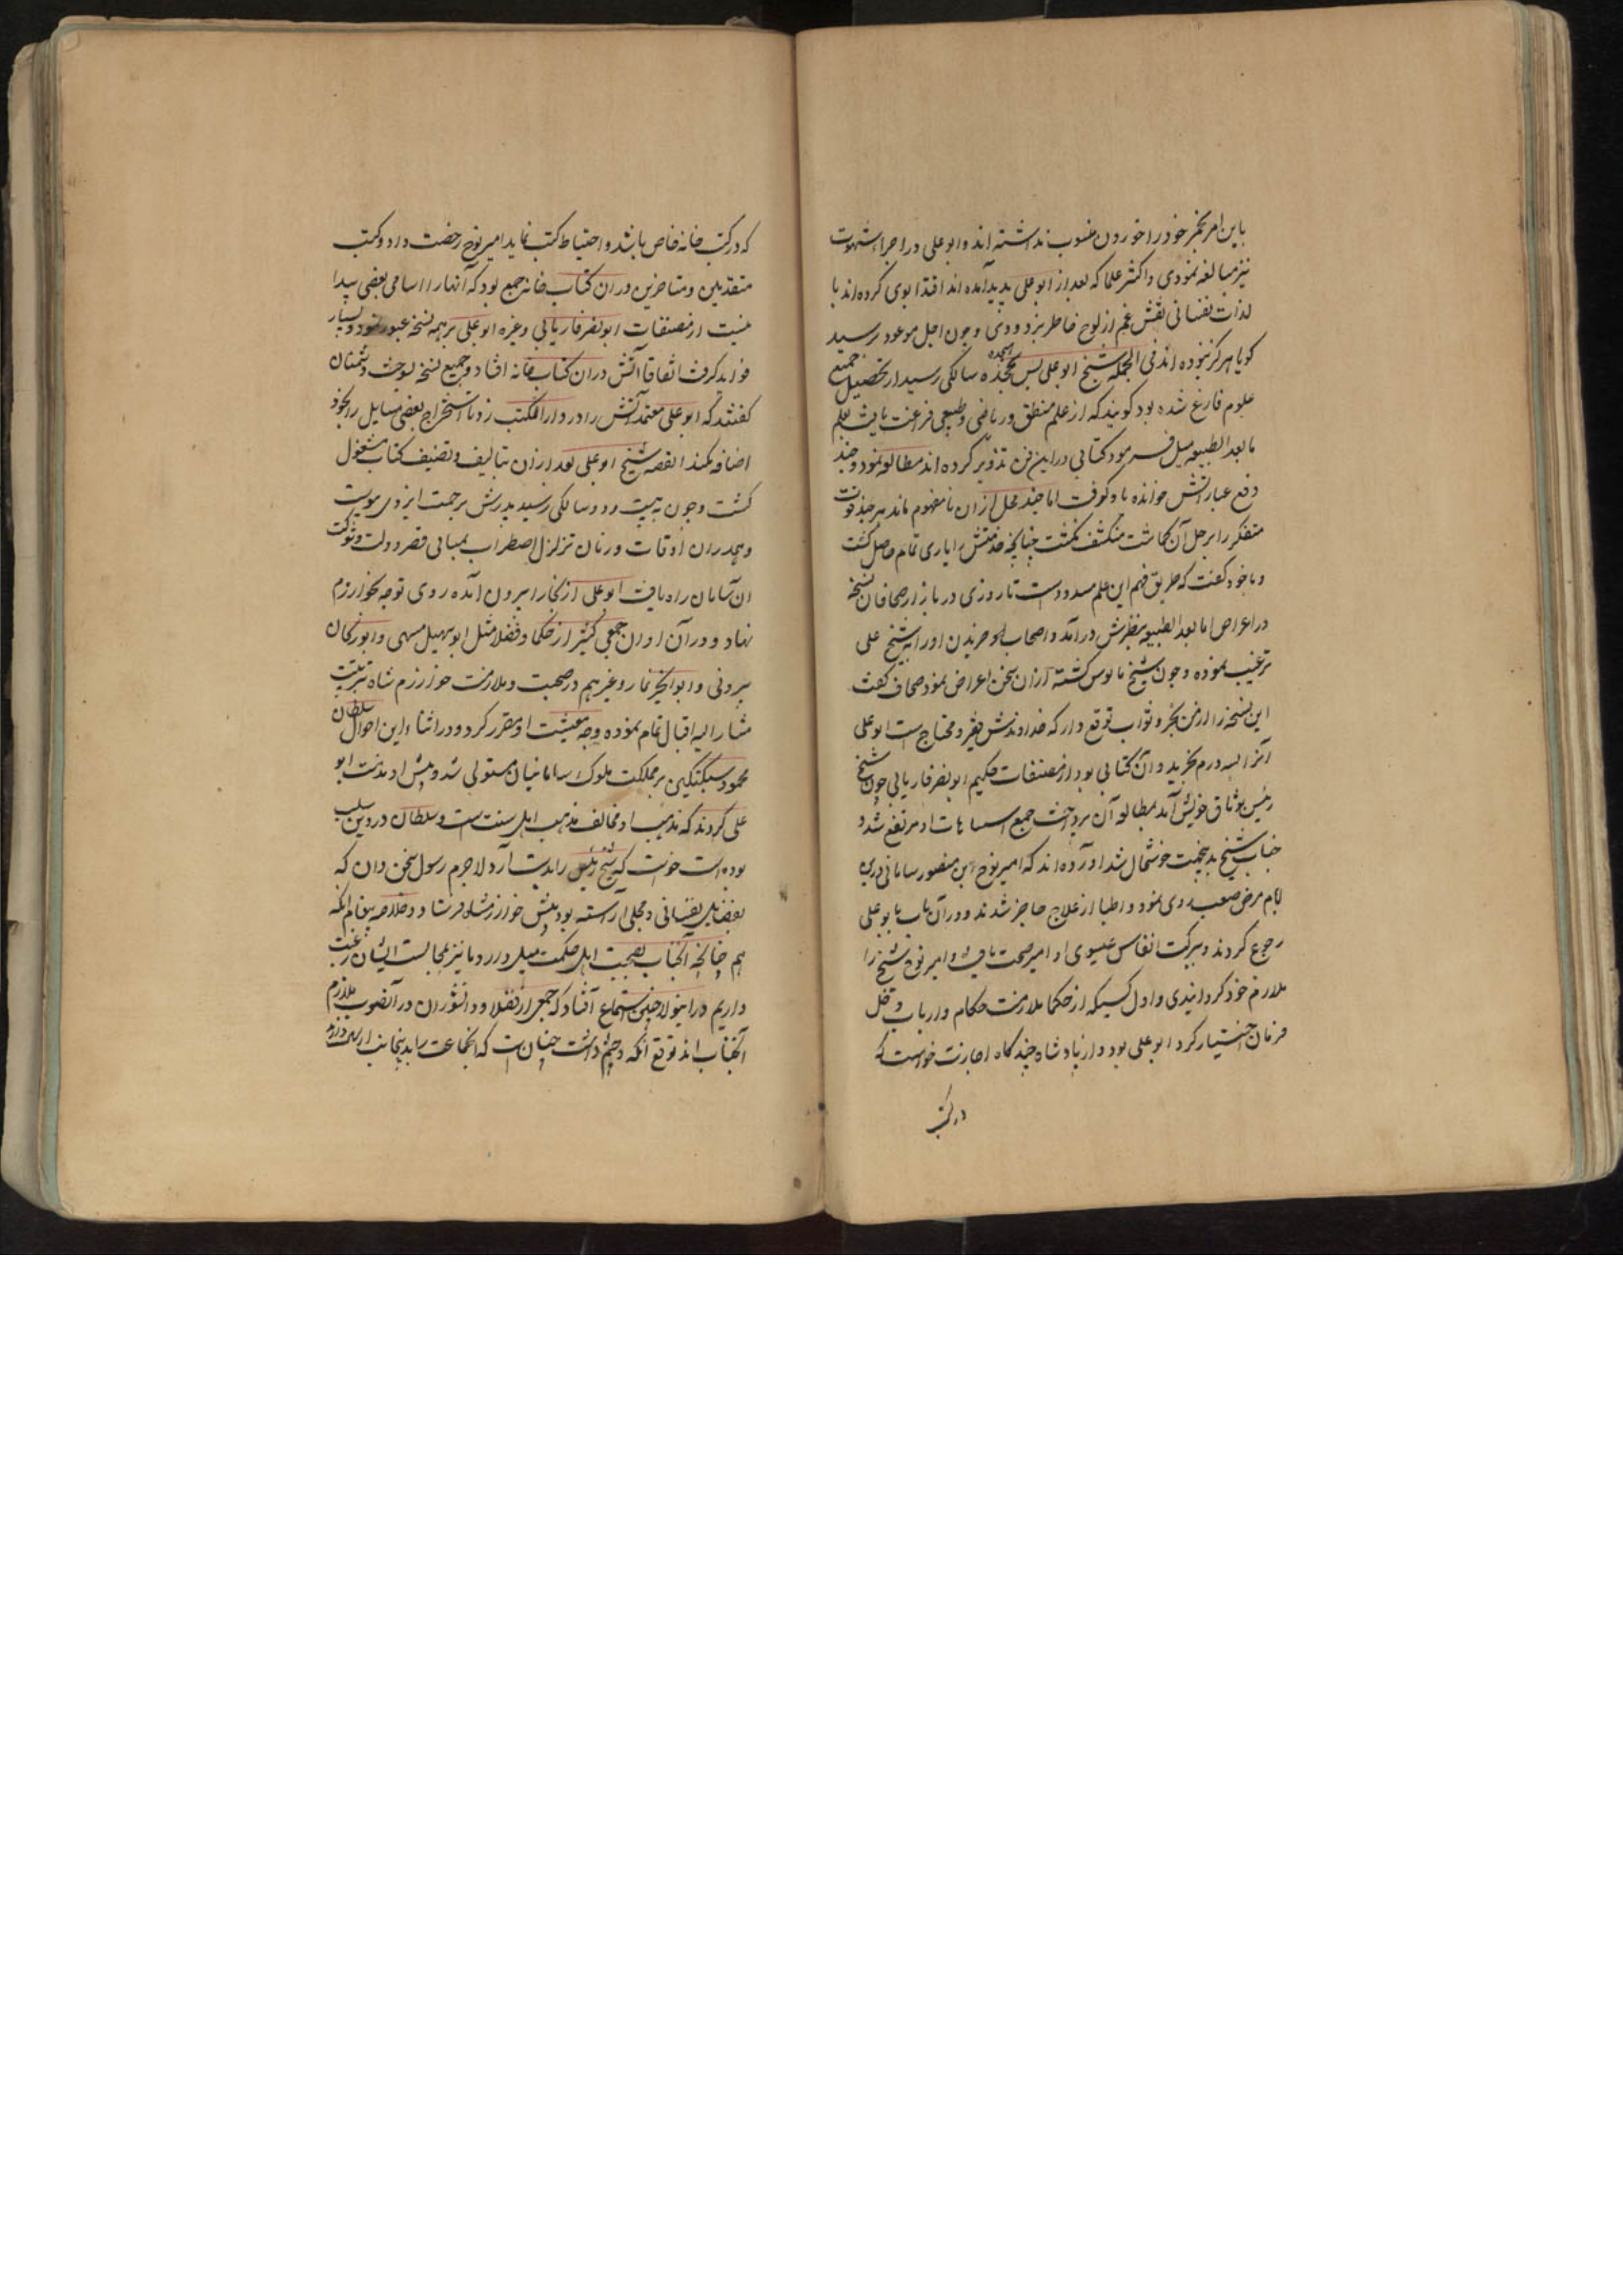 باین امر بجز خود را خوردن منسوب نداشته اند و ابو علی در اجرا شهوت
نیز مبالغه نمودی و اکثر علما که بعد از ابو علی پدید آمده اند اقتدا بوی کرده اند با
لذات نفسانی نقش غم از لوح خاطر بزدودی و چون اجل موعود رسید
کویا هرکز نبوده اند فی الجمله شیخ ابو علی بسن هجده سالکی رسید از تحصیل جمیع
علوم فارغ شده بود کویند که از علم منطق و ریاضی و طبیعی فراغت یافت بعلم
ما بعد الطبیعه میل فرمود کتابی در این فن تدویر کرده اند مطالعه نمود و چند
دفع عباراتش خوانده یاد کرفت اما چند محل از آن نامفهوم ماند هر چند قوت
متفکر را بر حل آن کماشت منکشف نکشت چنانچه خدمتش را یاری تمام حاصل کشت
و با خود کفت که طریق فهم این علم مسدود است تا روزی در بازار صحافان نسخه
در اعراض ما بعد الطبیعه بنظرش درآمد و اصحاب او خریدن او را به شیخ علی
ترغیب نموده و چون شیخ مایوس کشته از آن سخن اعراض نمود صحاف کفت
این نسخه را از من بخر و ثواب توقع دار که خداوندش فقیر و محتاج است ابو علی
آنرا بسه درم بخرید و آن کتابی بود از مصنفات حکیم ابو نصر فاریابی چون شیخ
رئیس بوثاق خویش آمد بمطالعه آن پرداخت جمیع اسباهات او مرتفع شد و
جناب شیخ بدینجهت خوشحال شد آورده اند که امیر نوح ابن منصور سامانی در ین
ایام مرض صعب روی نمود و اطبا از علاج عاجز شدند و در آن باب بابو علی
رجوع کردند و ببرکت انفاس عیسوی او امیر صحت یافت و امیر نوح شیخ را
ملازم خود کردانیدی و اول کسیکه از حکما ملازمت حکام و ارباب
فرمان اختیار کرد ابو علی بود و از پادشاه چند کاه اجازت خواست که
در کتب
که در کتب خانه خاص باشد و احتیاط کتب نماید امیر نوح رخصت داد و کتب
متقدمین و متاخرین در ان کتاب خانه جمیع بود که آنها را اسامی بعضی پیدا
نیست از مصنفات ابو نصر فاریابی و غیره ابو علی بر همه نسخه عبور نمود و بسیار
فواید کرفت اتفاقا آتش در ان کتاب خانه افتاد و جمیع نسخه سوخت و دشمنان
کفتند که ابو علی معتمد آتش را در دار الکتب زد تا استخراج بعضی مسایل را بخود
اضافه کند القصه شیخ ابو علی بعد از ان بتالیف و تصنیف کتاب مشغول
کشت و چون به بیست و دو سالکی رسید پدرش برحمت ایزدی پیوست
و همدران اوقات و زمان تزلزل اصطراب بمبانی قصر دولت و شوکت
ان سامان راه یافت ابو علی از بخارا بیرون آمده روی توجه بخوارزم
نهاد و در آن اوان جمعی کثیر از حکما و فضلا مثل ابو سهیل مسهی و ابو ریحان
بیرونی و ابو الخیر خمار و غیرهم در صحبت و ملازمت خوارزم شاه تربیت
مشار الیه اقبال تمام نموده وجه معیشت او مقرر کرد و در اثناء این احوال سلطان
محمود سبکتکین بر مملکت ملوک سامانیان مستولی شد و پیش او مذمت ابو
علی کردند که مذهب او مخالف مذهب اهل سنت است و سلطان در دین صلب
بوده است خواست که شیخ رئیس را بدست آرد لاجرم رسول سخن دان که
بفضایل نفسانی و محلی آراسته بود پیش خوارزمشاه فرستاد و خلاصه پیغام آنکه
هم چنانچه آنجناب بصحبت اهل حکمت میل دارد ما نیز بمجالست ایشان رغبت
داریم در اینولا چنین استماع افتاد که جمعی از فضلا و دانشوران در آنصوب ملازم
آنجناب اند توقع آنکه و چشم داشت چنان است که انجماعت را بدینجانب ارسال دارد